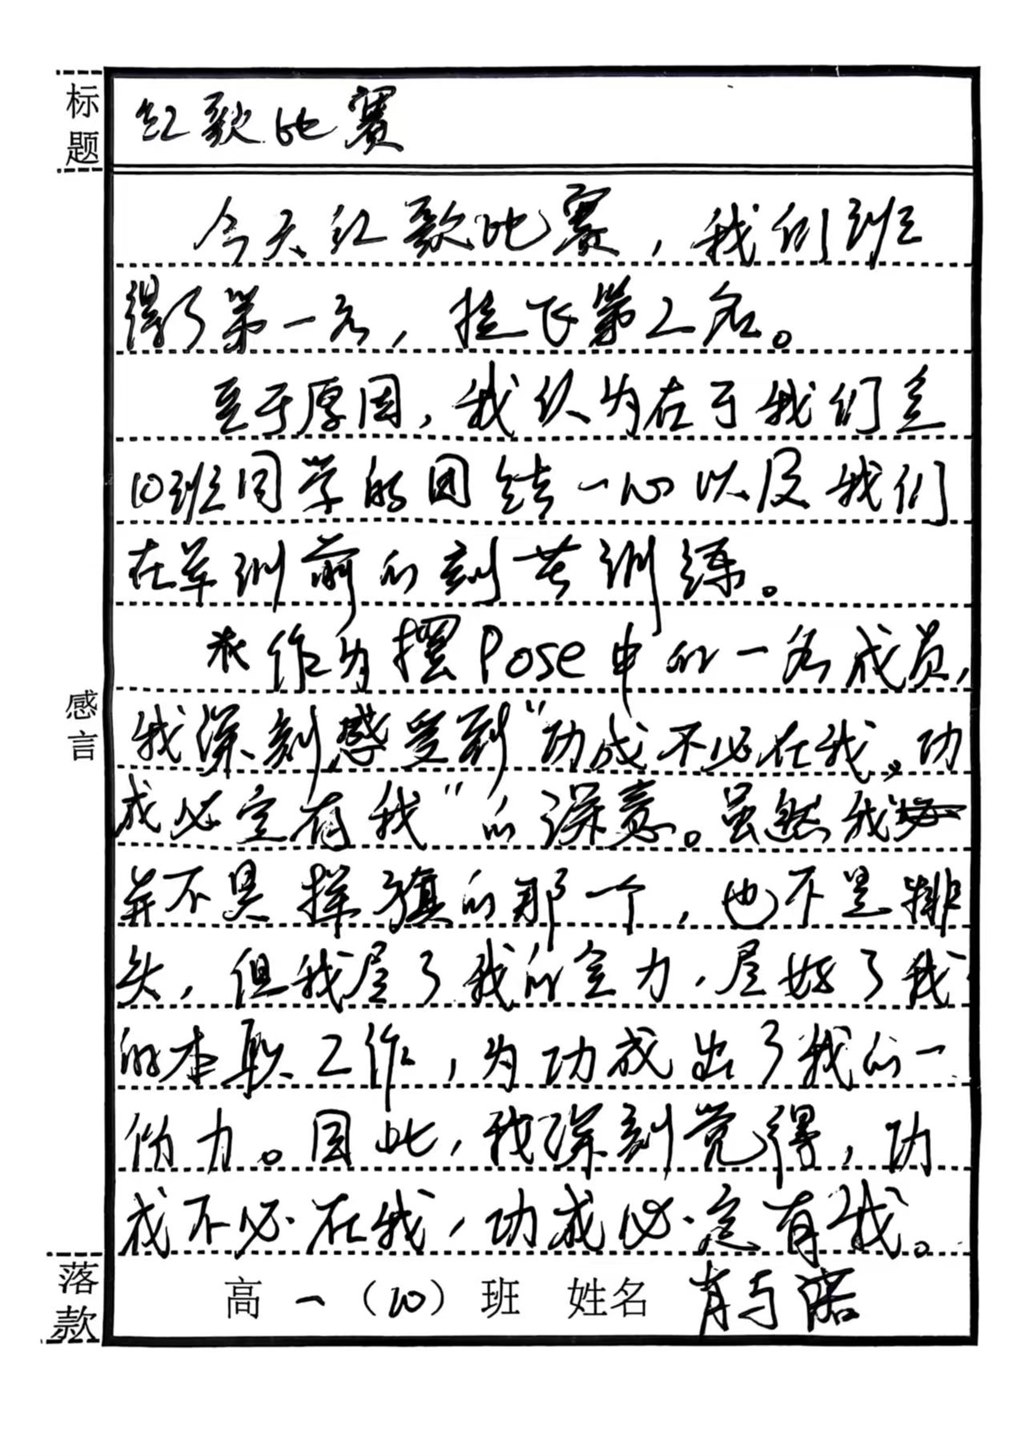 标题
红歌比赛
今天红歌比赛，我们班
得了第一名，拉飞第2名。
至于原因，我认为在于我们是
10班同学的团结一心以及我们
在军训前的刻苦训练。
我作为摆Pose中的一名成员，
我深刻感受到“功成不必在我，功
成必定有我”的深意。虽然我
并不是擎旗的那一个，也不是排
头，但我尽了我的全力，尽好了我
的本职工作，为功成出了我的一
份力。因此，我深刻觉得，功
成不必在我，功成必定有我。
感言
落款
高一（10）班 姓名 肖与诺